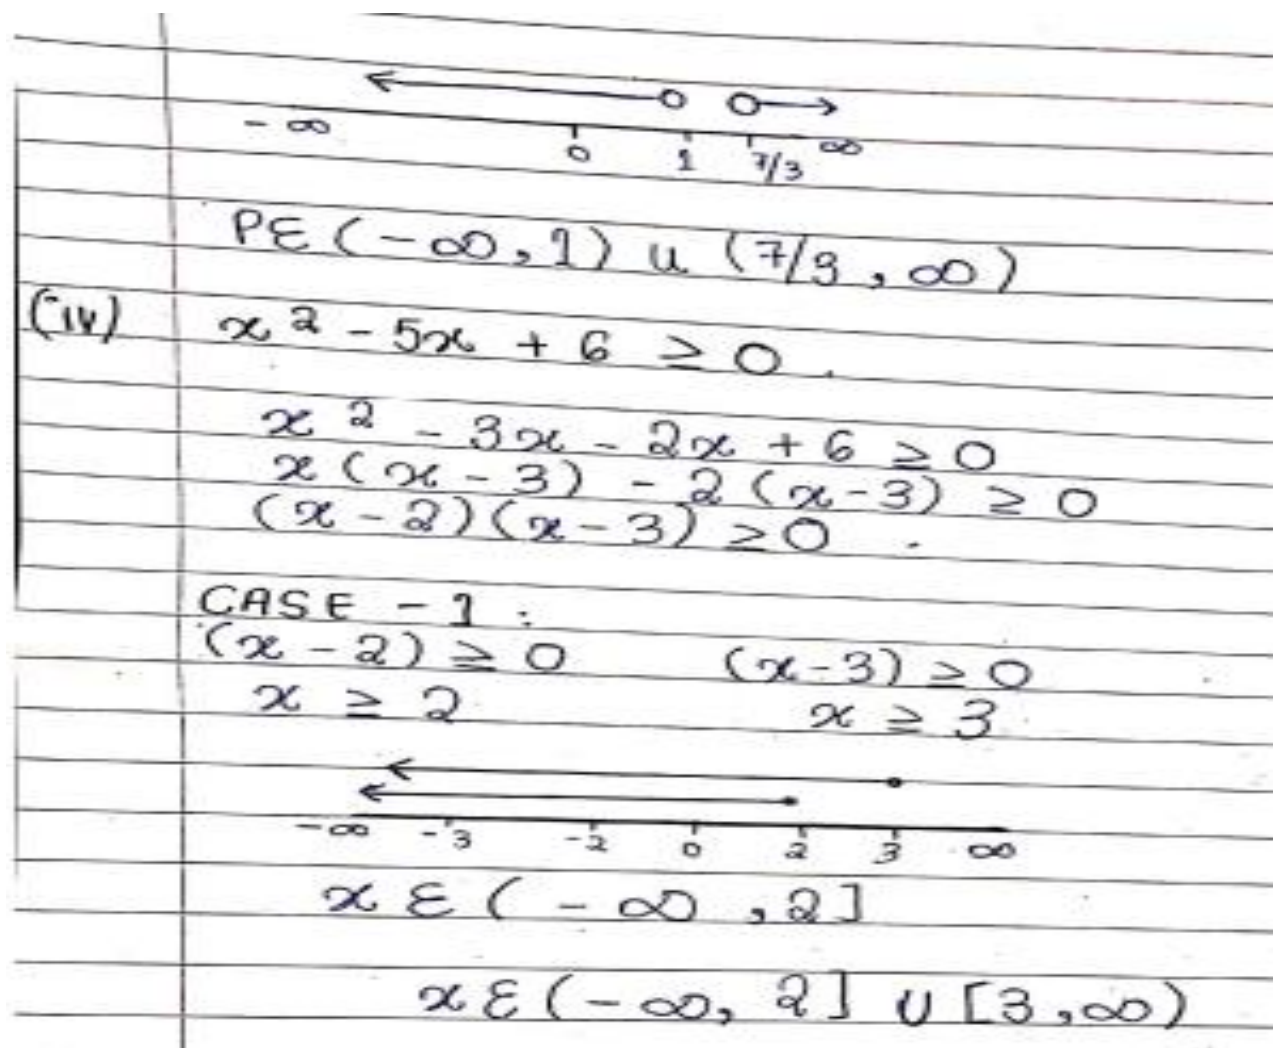 -∞ 0 1 7/3 ∞
PE (-∞, 1) u (7/3, ∞)
(iv) x² - 5x + 6 ≥ 0.
x² - 3x - 2x + 6 ≥ 0
x(x-3) - 2(x-3) ≥ 0
(x-2)(x-3) ≥ 0.
CASE - 1 :
(x-2) ≥ 0 (x-3) ≥ 0
x ≥ 2 x ≥ 3
-∞ -3 -2 0 2 3 ∞
x ε (-∞, 2]
x ε (-∞, 2] U [3, ∞)